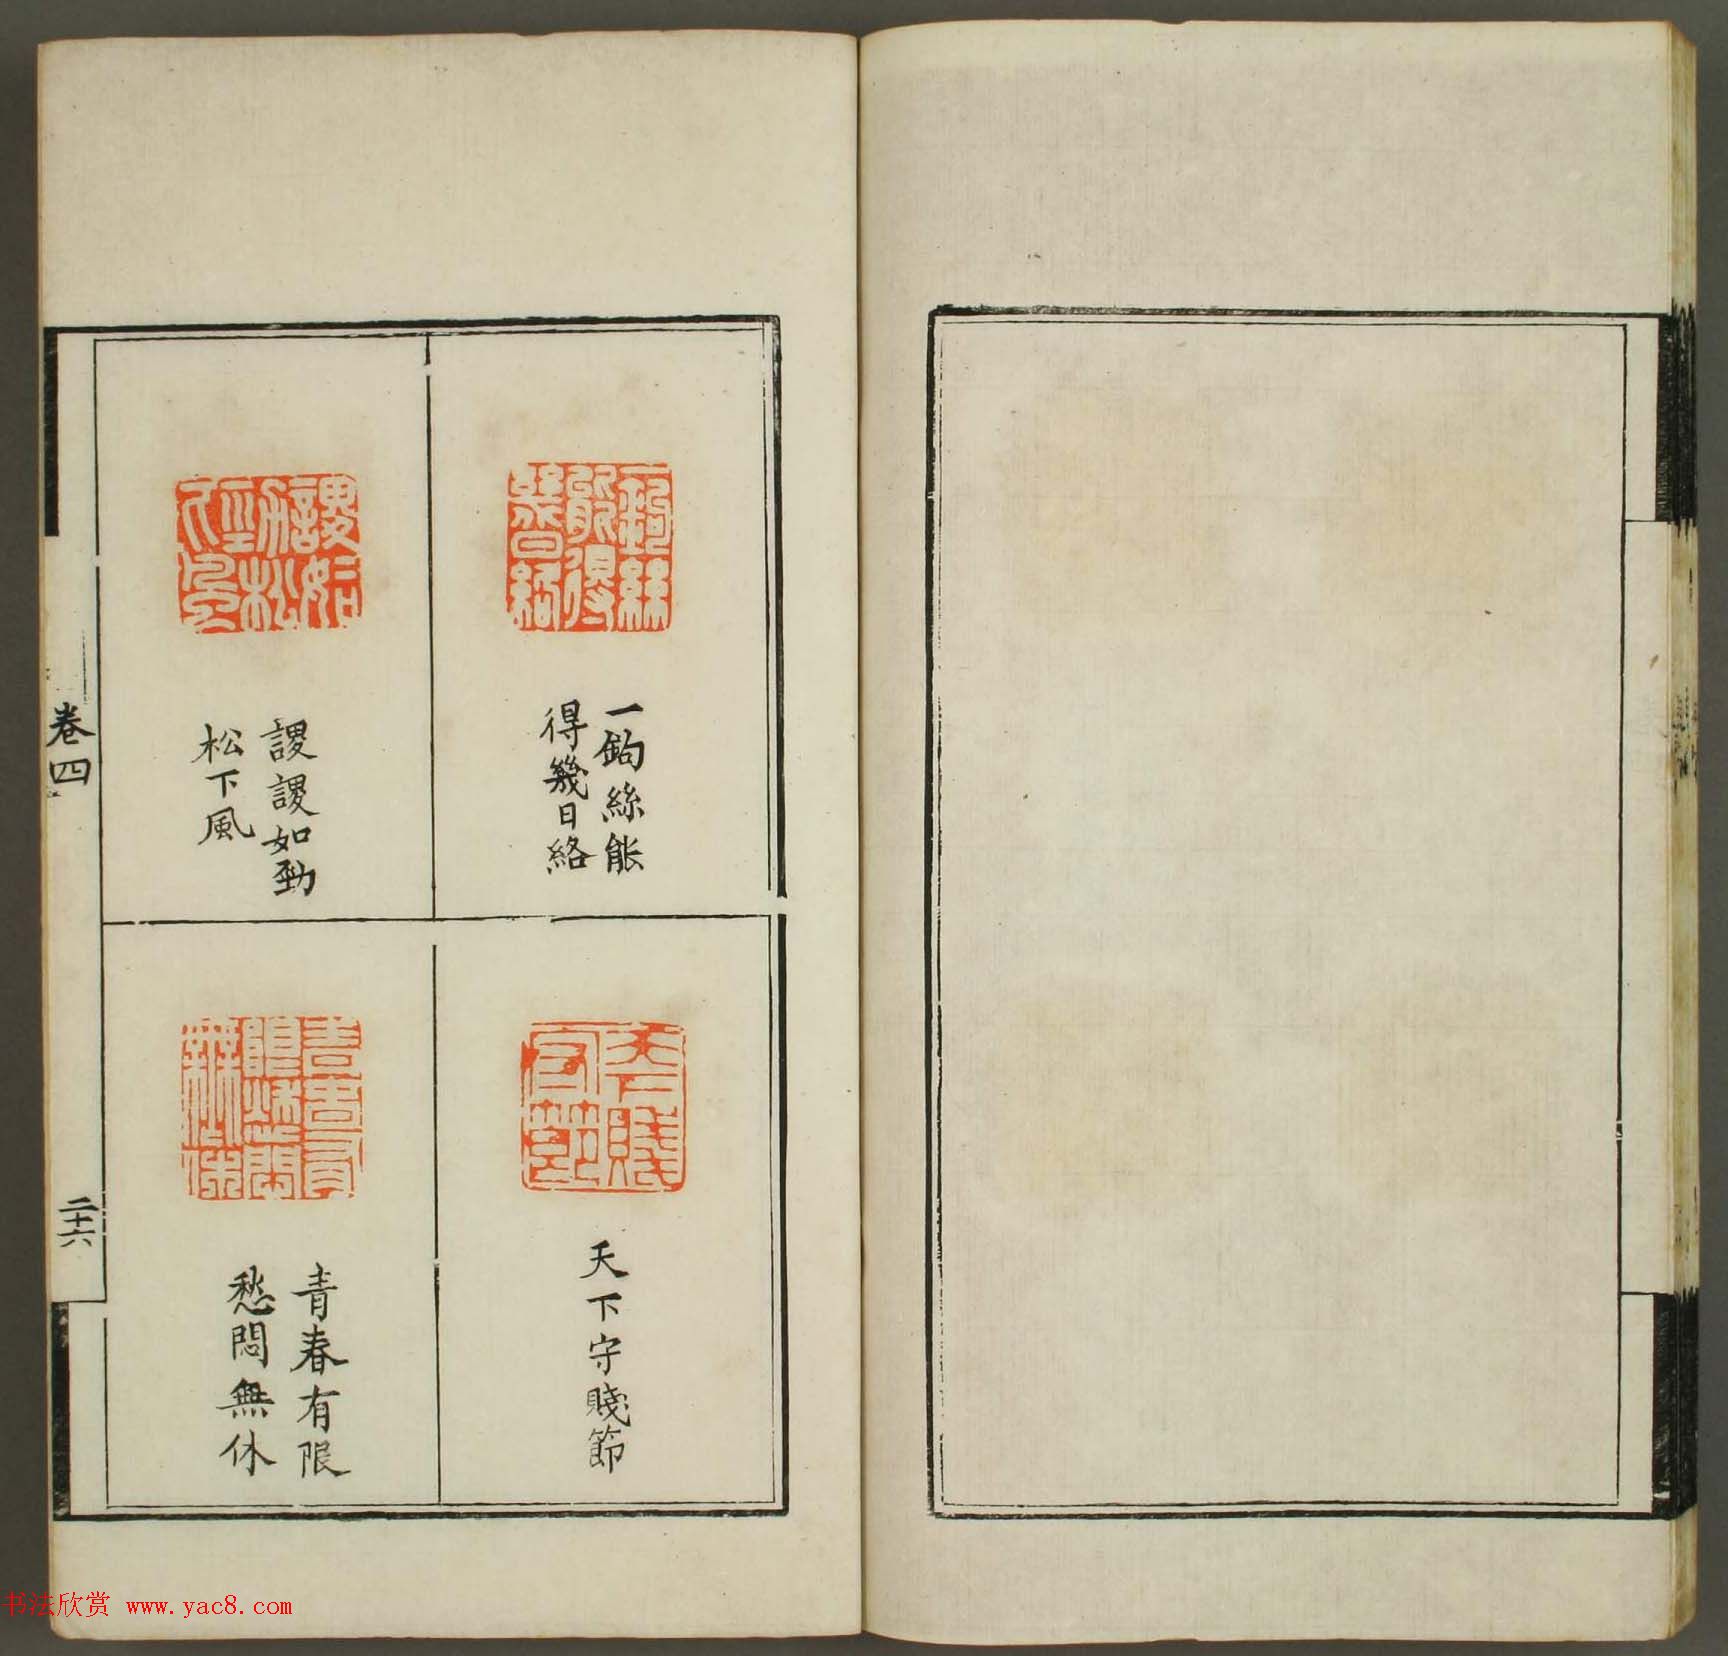 一鈎絲能
得幾日絡
謖謖如勁
松下風
天下守賤節
青春有限
愁悶無休
卷四
二十六
书法欣赏 www.yac8.com